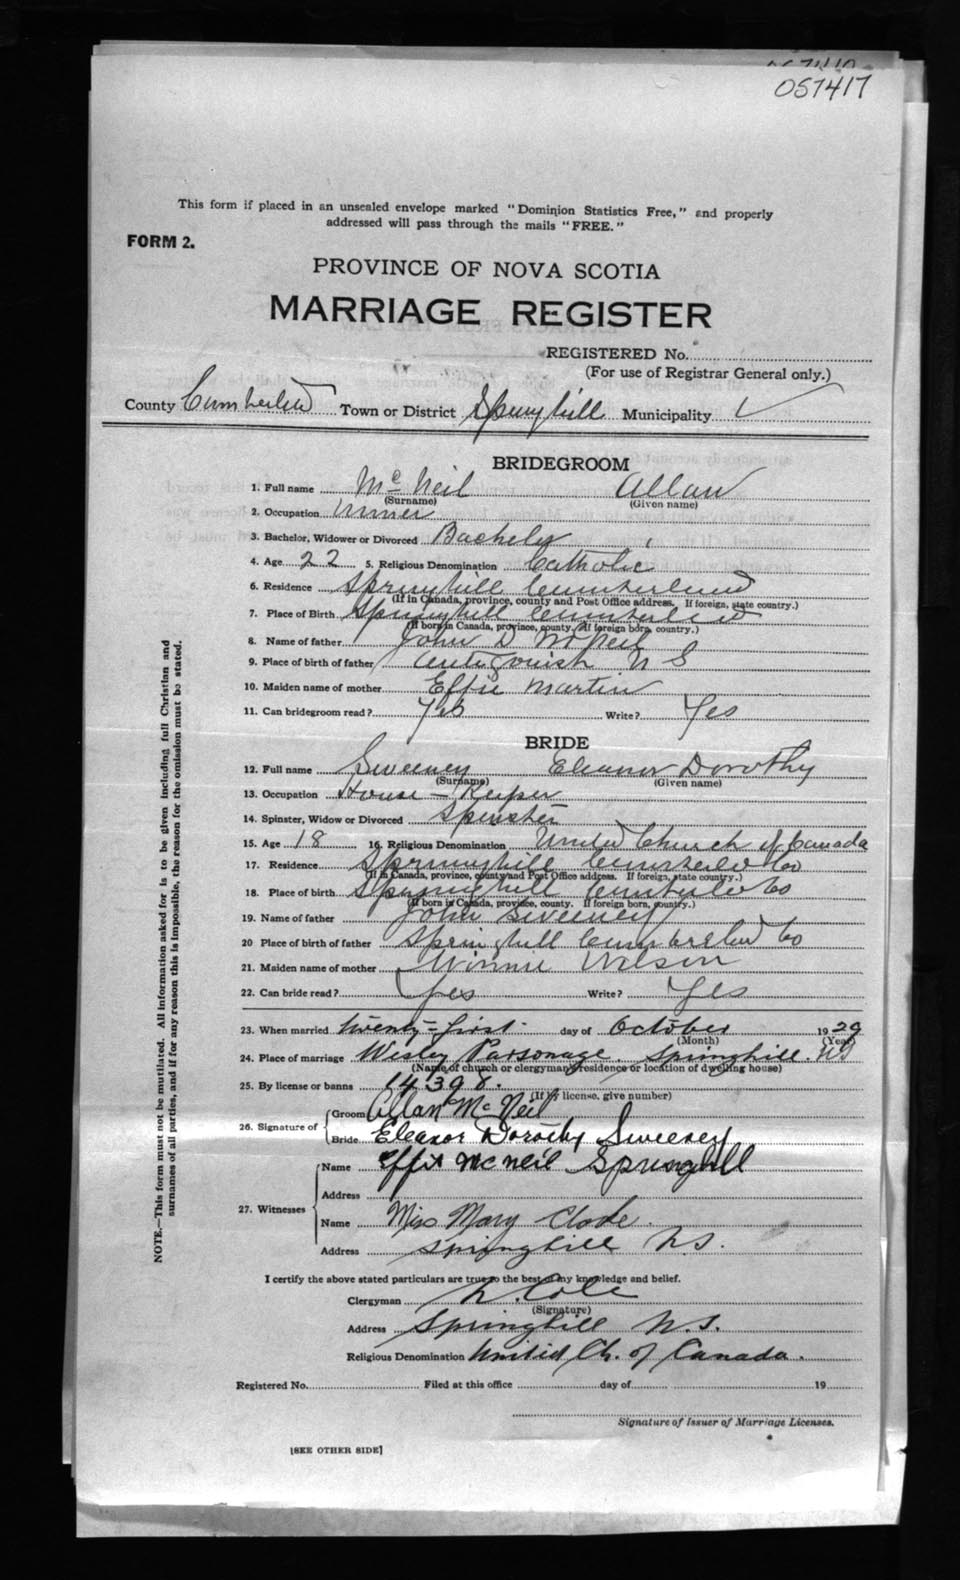 057417
This form if placed in an unsealed envelope marked "Dominion Statistics Free," and properly
addressed will pass through the mails "FREE."
FORM 2.
PROVINCE OF NOVA SCOTIA
MARRIAGE REGISTER
REGISTERED No.
(For use of Registrar General only.)
County Cumberland Town or District Springhill Municipality
BRIDEGROOM
1. Full name McNeil Allan
(Surname) (Given name)
2. Occupation Miner
3. Bachelor, Widower or Divorced Bachelor
4. Age 22 5. Religious Denomination Catholic
6. Residence Springhill Cumberland
(If in Canada, province, county and Post Office address. If foreign, state country.)
7. Place of Birth Springhill Cumberland
(If born in Canada, province, county. If foreign born, country.)
8. Name of father John D McNeil
9. Place of birth of father Antigonish N S
10. Maiden name of mother Effie Martin
11. Can bridegroom read? Yes Write? Yes
BRIDE
12. Full name Sweeney Eleanor Dorothy
(Surname) (Given name)
13. Occupation House-Keeper
14. Spinster, Widow or Divorced Spinster
15. Age 18 16. Religious Denomination United Church of Canada
17. Residence Springhill Cumberland Co
(If in Canada, province, county and Post Office address. If foreign, state country.)
18. Place of birth Springhill Cumberland Co
(If born in Canada, province, county. If foreign born, country.)
19. Name of father John Sweeney
20 Place of birth of father Springhill Cumberland Co
21. Maiden name of mother Winnie Wilson
22. Can bride read? Yes Write? Yes
23. When married twenty-first day of October 1929
(Month) (Year)
24. Place of marriage Wesley Parsonage. Springhill. NS
(Name of church or clergyman's residence or location of dwelling house)
25. By license or banns 14398.
(If by license, give number)
26. Signature of
Groom Allan McNeil
Bride Eleanor Dorothy Sweeney
27. Witnesses
Name Effie McNeil Springhill
Address
Name Miss Mary Clode.
Address Springhill N.S.
I certify the above stated particulars are true to the best of my knowledge and belief.
Clergyman Cole
(Signature)
Address Springhill N.S.
Religious Denomination United Ch. of Canada.
Registered No. Filed at this office day of 19
Signature of Issuer of Marriage Licenses.
[SEE OTHER SIDE]
NOTE.—This form must not be mutilated. All information asked for is to be given including full Christian and
surnames of all parties, and if for any reason this is impossible, the reason for the omission must be stated.